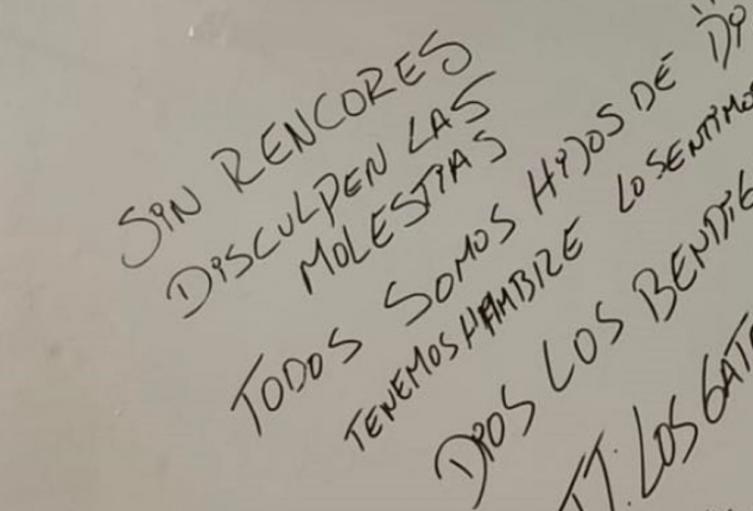 SIN RENCORES
DISCULPEN LAS
MOLESTIAS
TODOS SOMOS HIJOS DE
TENEMOS HAMBRE LO SENTIMOS
DIOS LOS BENDIG
TT. LOS GATO